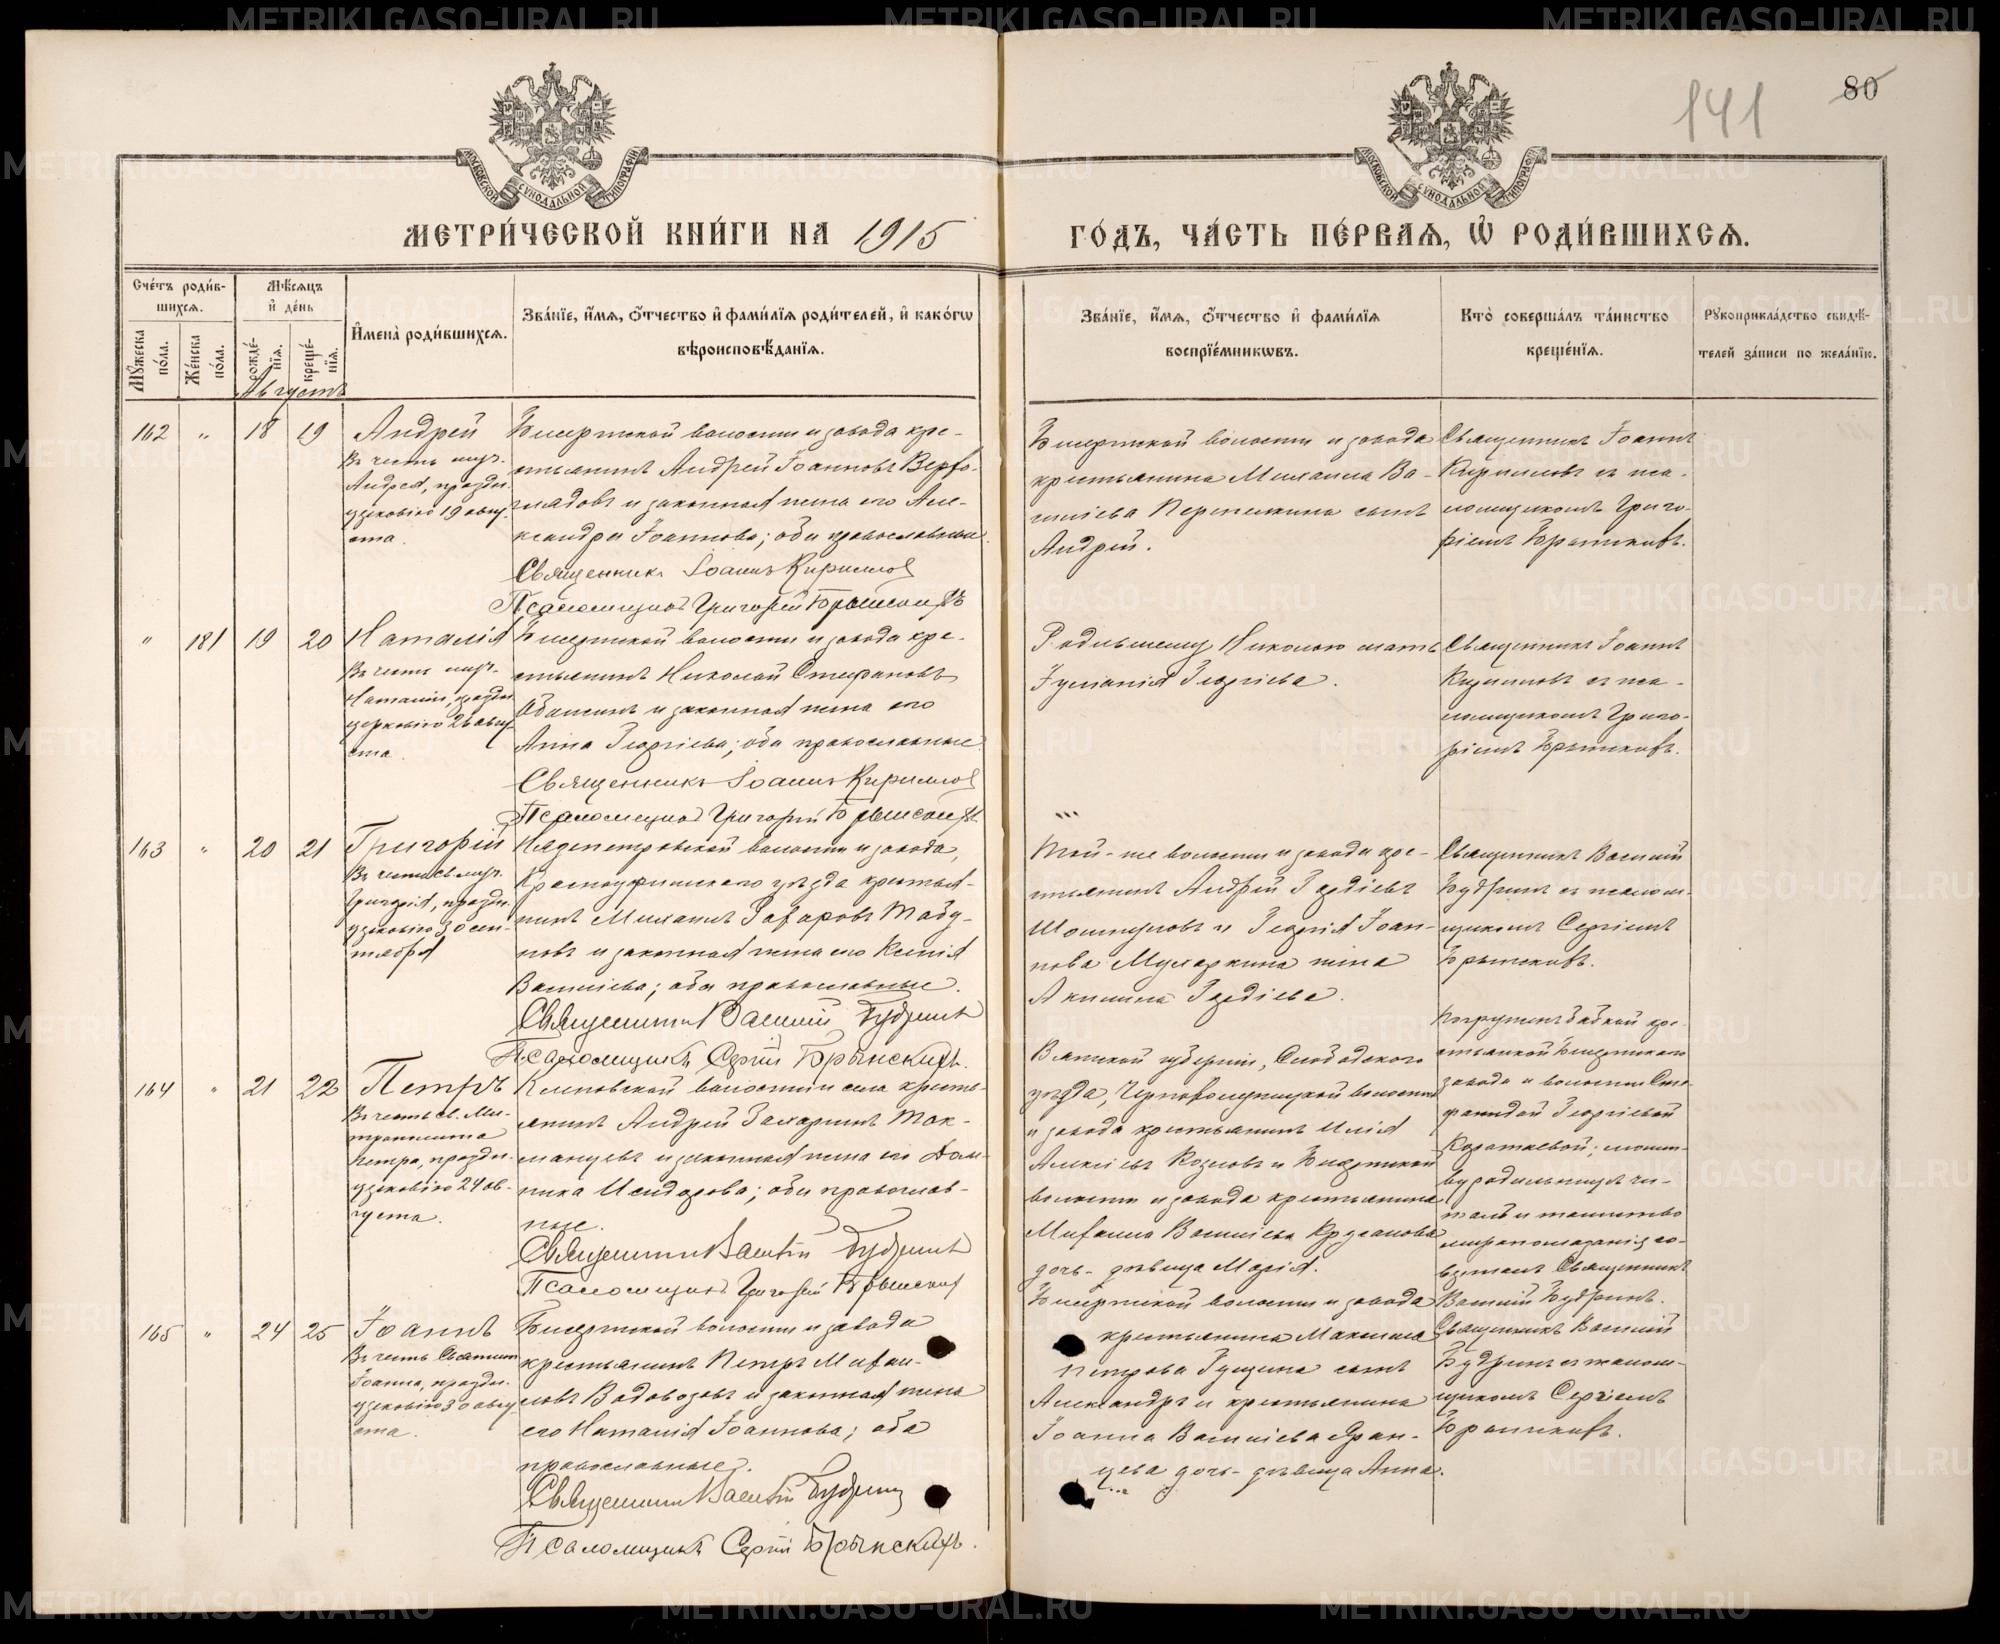 141
80
МЕТРИ́ЧЕСКОЙ КНИ́ГИ НА 1915
ГО́ДЪ, ЧА́СТЬ ПЕ́РВАѦ, Ѿ РОДИ́ВШИХСѦ.
МОСКОВСКОЙ СѴНОДАЛЬНОЙ ТИПОГРАФІИ
МОСКОВСКОЙ СѴНОДАЛЬНОЙ ТИПОГРАФІИ
Сче́тъ роди́в-
шихсѧ.
Мꙋ́жеска по́ла.
Же́нска по́ла.
Мѣ́сѧцъ
и҆ де́нь
рожде́-нїѧ.
креще́-нїѧ.
Августъ
И҆мена̀ роди́вшихсѧ.
Зва́нїе, и҆́мѧ, ѻ҆́тчество и҆ фами́лїѧ роди́телей, и҆ како́гѡ
вѣроисповѣ́данїѧ.
Зва́нїе, и҆́мѧ, ѻ҆́тчество и҆ фами́лїѧ
воспрїе́мникѡвъ.
Кто̀ соверша́лъ та́инство
креще́нїѧ.
Рꙋкоприкла́дство свидѣ́-
телей за́писи по жела́нїю.
162 " 18 19
Андрей
Въ честь муч.
Андрея, праздн.
церковію 19 авгу-
ста.
Бисертской волости и завода кре-
стьянинъ Андрей Іоанновъ Верхо-
глядовъ и законная жена его Але-
ксандра Іоаннова; оба православные.
Священникъ Іоаннъ Кирилловъ
Псаломщикъ Григорій Брынскихъ
Бисертской волости и завода
крестьянина Михаила Ва-
силіева сынъ
Андрей.
Священникъ Іоаннъ
Кирилловъ съ пса-
ломщикомъ Григо-
ріемъ Брынскихъ.
" 181 19 20
Наталія
Въ честь муч.
Наталіи, праздн.
церковію 26 авгу-
ста.
Бисертской волости и завода кре-
стьянинъ Николай Стефановъ
и законная жена его
Анна Георгіева; оба православные.
Священникъ Іоаннъ Кирилловъ
Псаломщикъ Григорій Брынскихъ
Родившему Николаю мать
Іуліанія Георгіева.
Священникъ Іоаннъ
Кирилловъ съ пса-
ломщикомъ Григо-
ріемъ Брынскихъ.
163 " 20 21
Григорій
Въ честь св. муч.
Григорія, праздн.
церковію 30 сен-
тября
Нязепетровской волости и завода,
Красноуфимскаго уѣзда крестья-
нинъ Михаилъ Захаровъ Табу-
новъ и законная жена его Ксенія
Василіева; оба православные.
Священникъ Василій Будринъ
Псаломщикъ Сергій Брынскихъ.
Той-же волости и завода кре-
стьянинъ Андрей Гордіевъ
и Георгія Іоан-
нова жена
Акилина Гордіева.
Священникъ Василій
Будринъ съ псалом-
щикомъ Сергіемъ
Брынскихъ.
164 " 21 22
Петръ
Въ честь св. Ми-
трополита
Петра, праздн.
церковію 24 ав-
густа.
Кленовской волости и села кресть-
янинъ Андрей Захаринъ Ток-
манцевъ и законная жена его Дом-
ника Исидорова; оба православ-
ные.
Священникъ Василій Будринъ
Псаломщикъ Григорій Брынскихъ
Вятской губерніи, Слободского
уѣзда, Чернохолуницкой волости
и завода крестьянинъ Илія
Алексіевъ Козловъ и Бисертской
волости и завода крестьянина
Михаила Василіева
дочь-дѣвица Марія.
Погруженъ бабкой кре-
стьянкой Бисертскаго
завода и волости Сте-
фанидой Георгіевой
молит-
ву родильницѣ чи-
талъ и таинство
миропомазанія со-
вершалъ Священникъ
Василій Будринъ.
165 " 24 25
Іоаннъ
Въ честь Святит.
Іоанна, праздн.
церковію 30 авгу-
ста.
Бисертской волости и завода
крестьянинъ Петръ Михаи-
ловъ Водовозовъ и законная жена
его Наталія Іоаннова; оба
православные.
Священникъ Василій Будринъ
Псаломщикъ Сергій Брынскихъ.
Бисертской волости и завода
крестьянина Максима
Петрова Гущина сынъ
Александръ и крестьянина
Іоанна Василіева Яран-
цева дочь-дѣвица Анна.
Священникъ Василій
Будринъ съ псалом-
щикомъ Сергіемъ
Брынскихъ.
METRIKI.GASO-URAL.RU